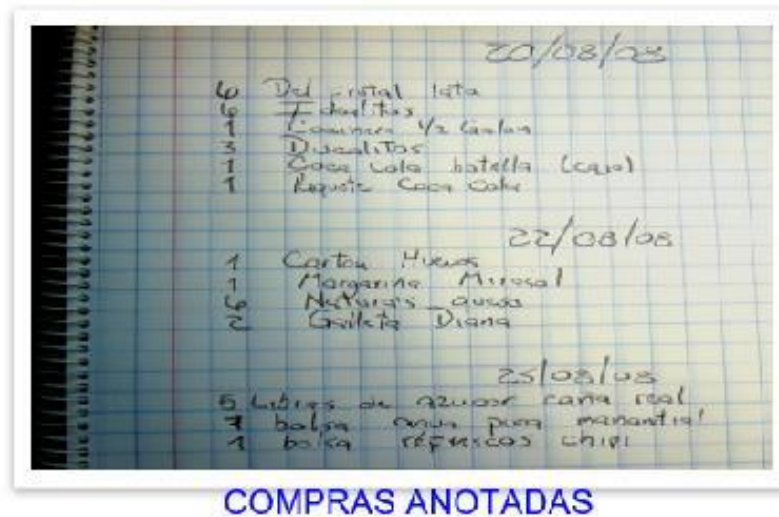 20/08/08
6 Del cristal lata
6 Fdelitos
1 1/2 Galon
3 Ducalitos
1 Coca Cola botella (caja)
1 Coca Cola
22/08/08
1 Carton Huevos
1 Margarina Mirasol
6 Natura's queso
2 Galleta Diana
25/08/08
5 Libras de azucar caña real
1 bolsa agua pura manantial
1 bolsa refrescos chipi
COMPRAS ANOTADAS